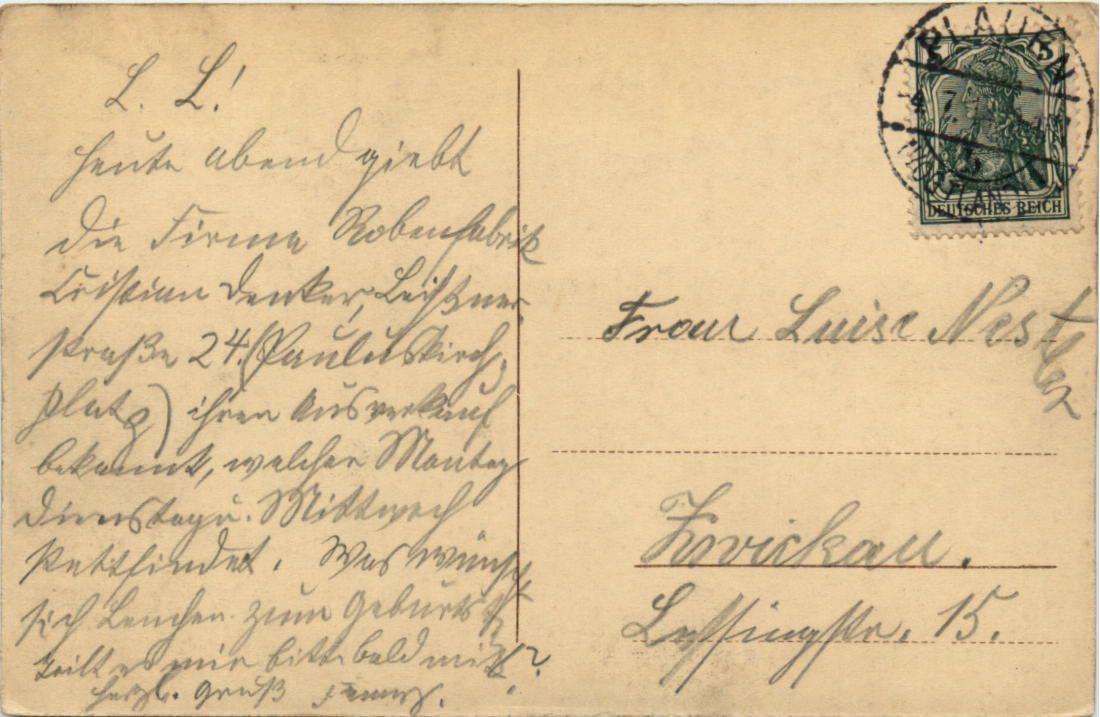 L. L!
Heute abend giebt
die Firma Robenfabrik
Cristian Denker, Leißner
straße 24. (Pauluskirch-
platz) ihren Ausverkauf
bekannt, welcher Montag
Dienstag u. Mittwoch
stattfindet. Was wünscht
sich Lenchen zum Geburtst.
teilt es mir bitte bald mit!?
herzl. Gruß
PLAUEN
(VOGTLAND)
5
DEUTSCHES REICH
Frau Luise Nestler
Zwickau.
Lessingstr. 15.